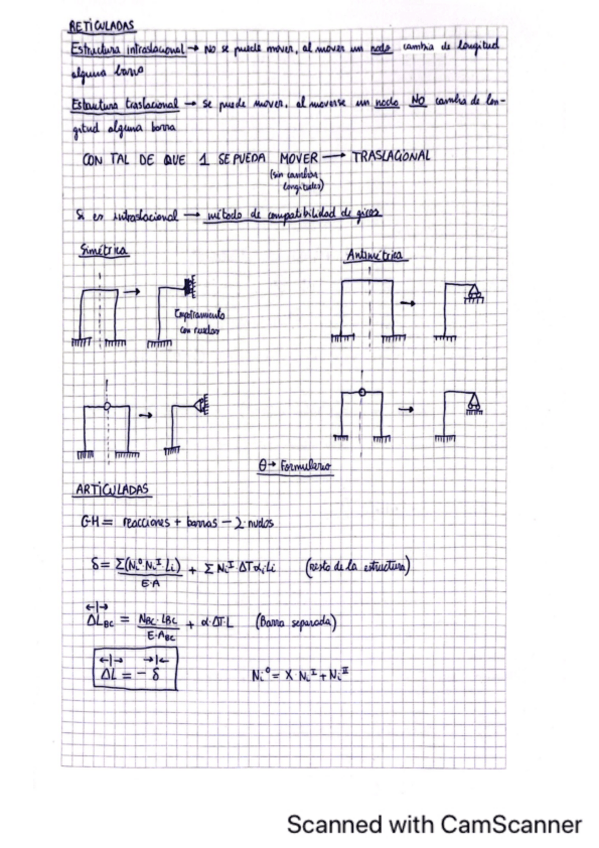 RETICULADAS
Estructura intraslacional → No se puede mover, al mover un nodo cambia de longitud
alguna barra
Estructura traslacional → Se puede mover, al moverse un nodo NO cambia de lon-
gitud alguna barra
CON TAL DE QUE 1 SE PUEDA MOVER → TRASLACIONAL
(sin cambiar
longitudes)
Si es intraslacional → método de compatibilidad de giros
Simétrica
Antimétrica
Empotramiento
con ruedas
θ → Formulario
ARTICULADAS
GH = reacciones + barras - 2 nudos
δ = Σ(Ni⁰ Niᴵ Li) / E·A + Σ Niᴵ ΔT αi Li (resto de la estructura)
ΔL_BC = N_BC · L_BC / E·A_BC + α·ΔT·L (Barra separada)
ΔL = - δ
Ni⁰ = X Niᴵ + Niᴵᴵ
Scanned with CamScanner